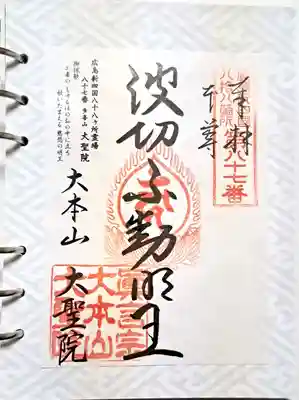 奉拝
八十八箇所
八十七番
本尊
波切不動明王
広島新四国八十八ヶ所霊場
八十七番 多喜山 大聖院
御詠歌
大本山
大聖院
真言宗
大本山
大聖院